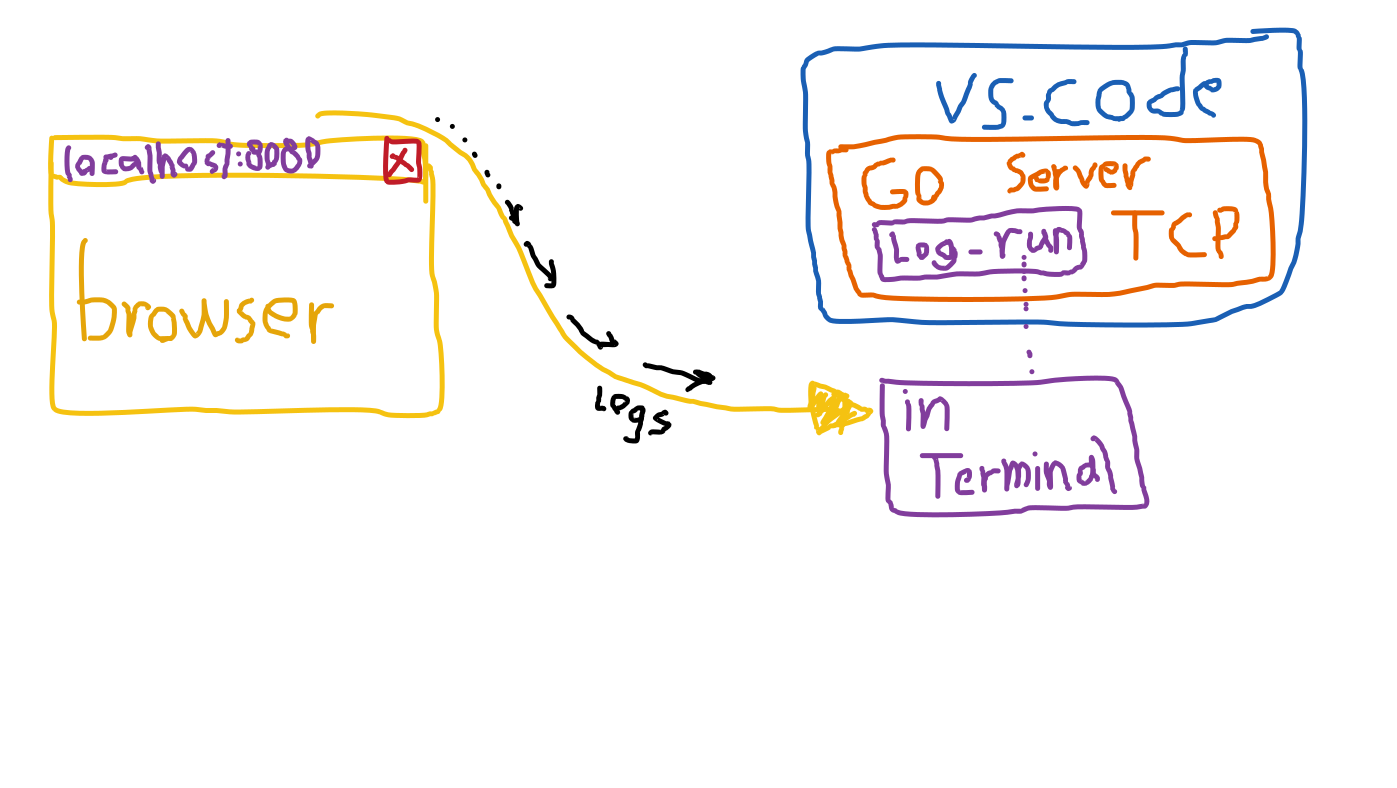 localhost:8080
browser
Logs
VS.Code
Go Server
Log-run TCP
in
Terminal